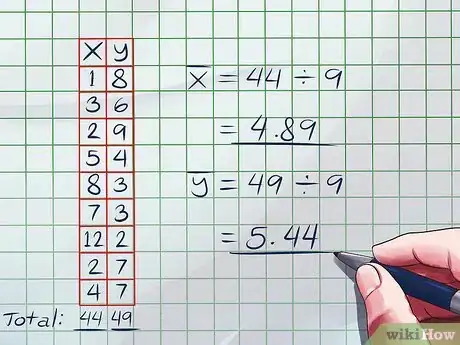 X y
1 8
3 6
2 9
5 4
8 3
7 3
12 2
2 7
4 7
Total: 44 49
x̅ = 44 ÷ 9
= 4.89
y̅ = 49 ÷ 9
= 5.44
wikiHow